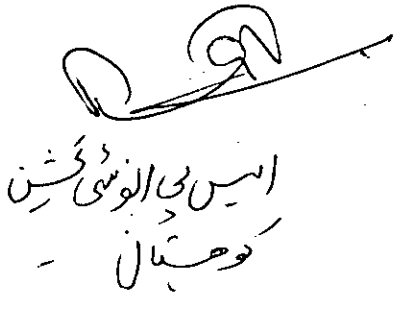 ایس پی انوسٹی گیشن
کوہستان